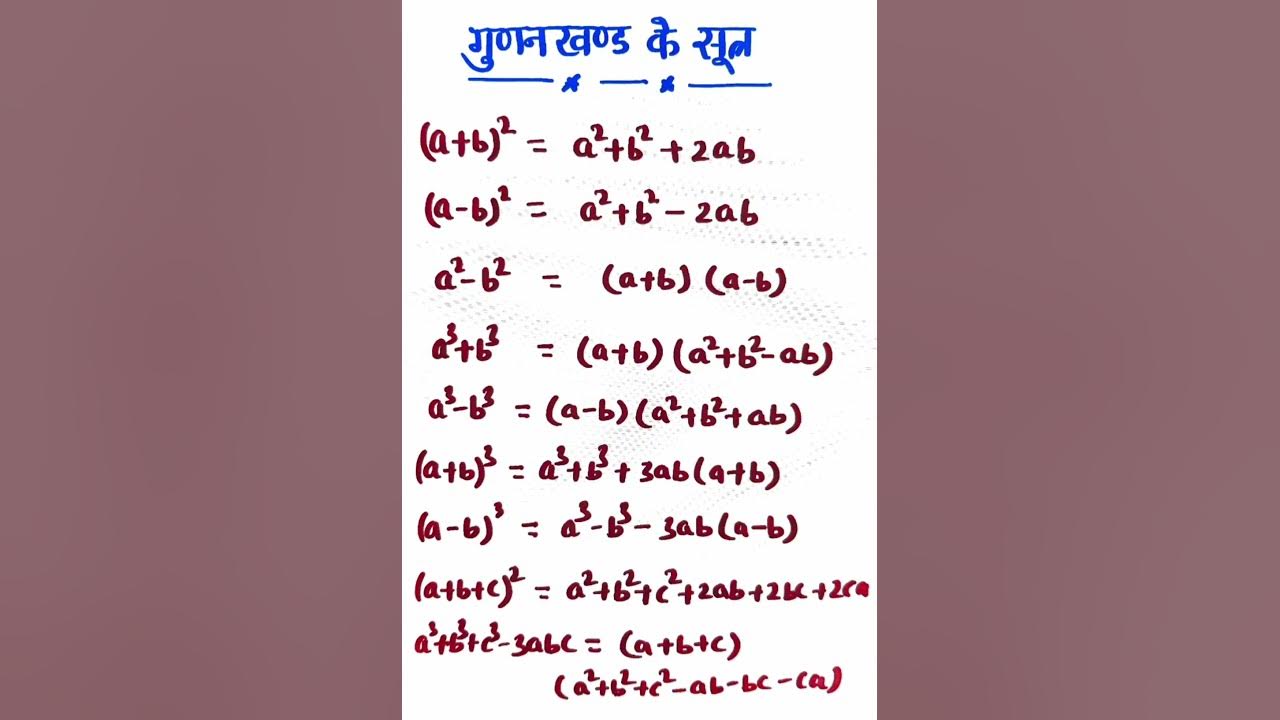 गुणनखण्ड के सूत्र
(a+b)² = a²+b²+2ab
(a-b)² = a²+b²-2ab
a²-b² = (a+b) (a-b)
a³+b³ = (a+b) (a²+b²-ab)
a³-b³ = (a-b) (a²+b²+ab)
(a+b)³ = a³+b³+3ab(a+b)
(a-b)³ = a³-b³-3ab(a-b)
(a+b+c)² = a²+b²+c²+2ab+2bc+2ca
a³+b³+c³-3abc = (a+b+c)
(a²+b²+c²-ab-bc-ca)